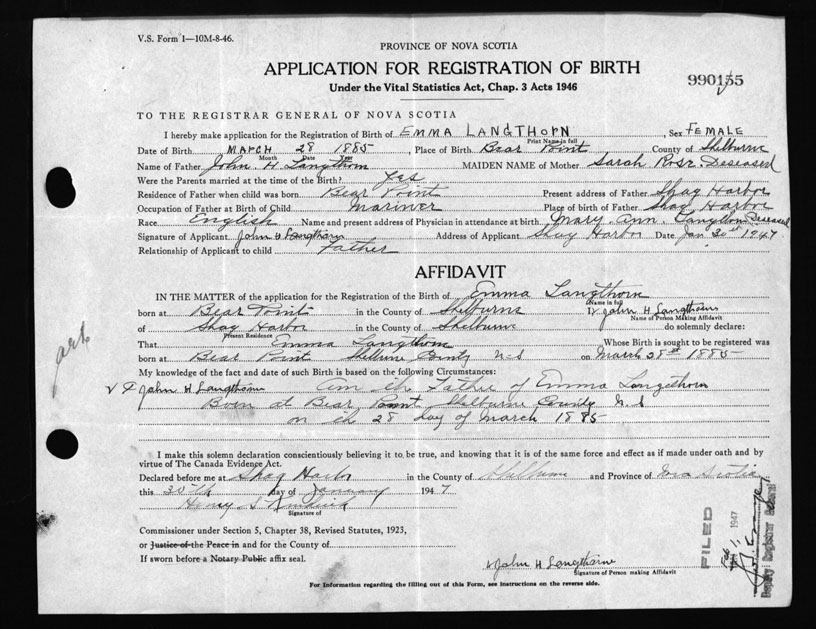 V.S. Form 1—10M-8-46.
PROVINCE OF NOVA SCOTIA
APPLICATION FOR REGISTRATION OF BIRTH
990155
Under the Vital Statistics Act, Chap. 3 Acts 1946
TO THE REGISTRAR GENERAL OF NOVA SCOTIA
I hereby make application for the Registration of Birth of EMMA LANGTHORN, Sex FEMALE
Print Name in full
Date of Birth MARCH 28 1885, Place of Birth Bear Point County of Shelburne
Month Date Year
Name of Father John H Langthorn MAIDEN NAME of Mother Sarah Rose Deseased
Were the Parents married at the time of the Birth? Yes
Residence of Father when child was born Bear Point Present address of Father Shag Harbor
Occupation of Father at Birth of Child Mariner Place of birth of Father Shag Harbor
Race English Name and present address of Physician in attendance at birth Mary Ann Deseased
Signature of Applicant John H Langthorn Address of Applicant Shag Harbor Date Jan 30st 1947
Relationship of Applicant to child Father
AFFIDAVIT
IN THE MATTER of the application for the Registration of the Birth of Emma Langthorn
Name in full
born at Bear Point in the County of Shelburne I, John H Langthorn
Name of Person Making Affidavit
of Shag Harbor in the County of Shelburne do solemnly declare:
Present Residence
That Emma Langthorn Whose Birth is sought to be registered was
born at Bear Point Shelburne County N S on March 28st 1885
My knowledge of the fact and date of such Birth is based on the following Circumstances:
John H Langthorne am the Father of Emma Langthorn
Born at Bear Point Shelburne County N. S
on the 28 day of March 1885
I make this solemn declaration conscientiously believing it to be true, and knowing that it is of the same force and effect as if made under oath and by
virtue of The Canada Evidence Act.
Declared before me at Shag Harbor in the County of Shelburne and Province of Nova Scotia
this 30th day of January 1947
Henry S
Signature of
Commissioner under Section 5, Chapter 38, Revised Statutes, 1923,
or Justice of the Peace in and for the County of
If sworn before a Notary Public affix seal.
John H Langthorne
Signature of Person making Affidavit
For Information regarding the filling out of this Form, see instructions on the reverse side.
FILED
1947
Deputy Registrar General